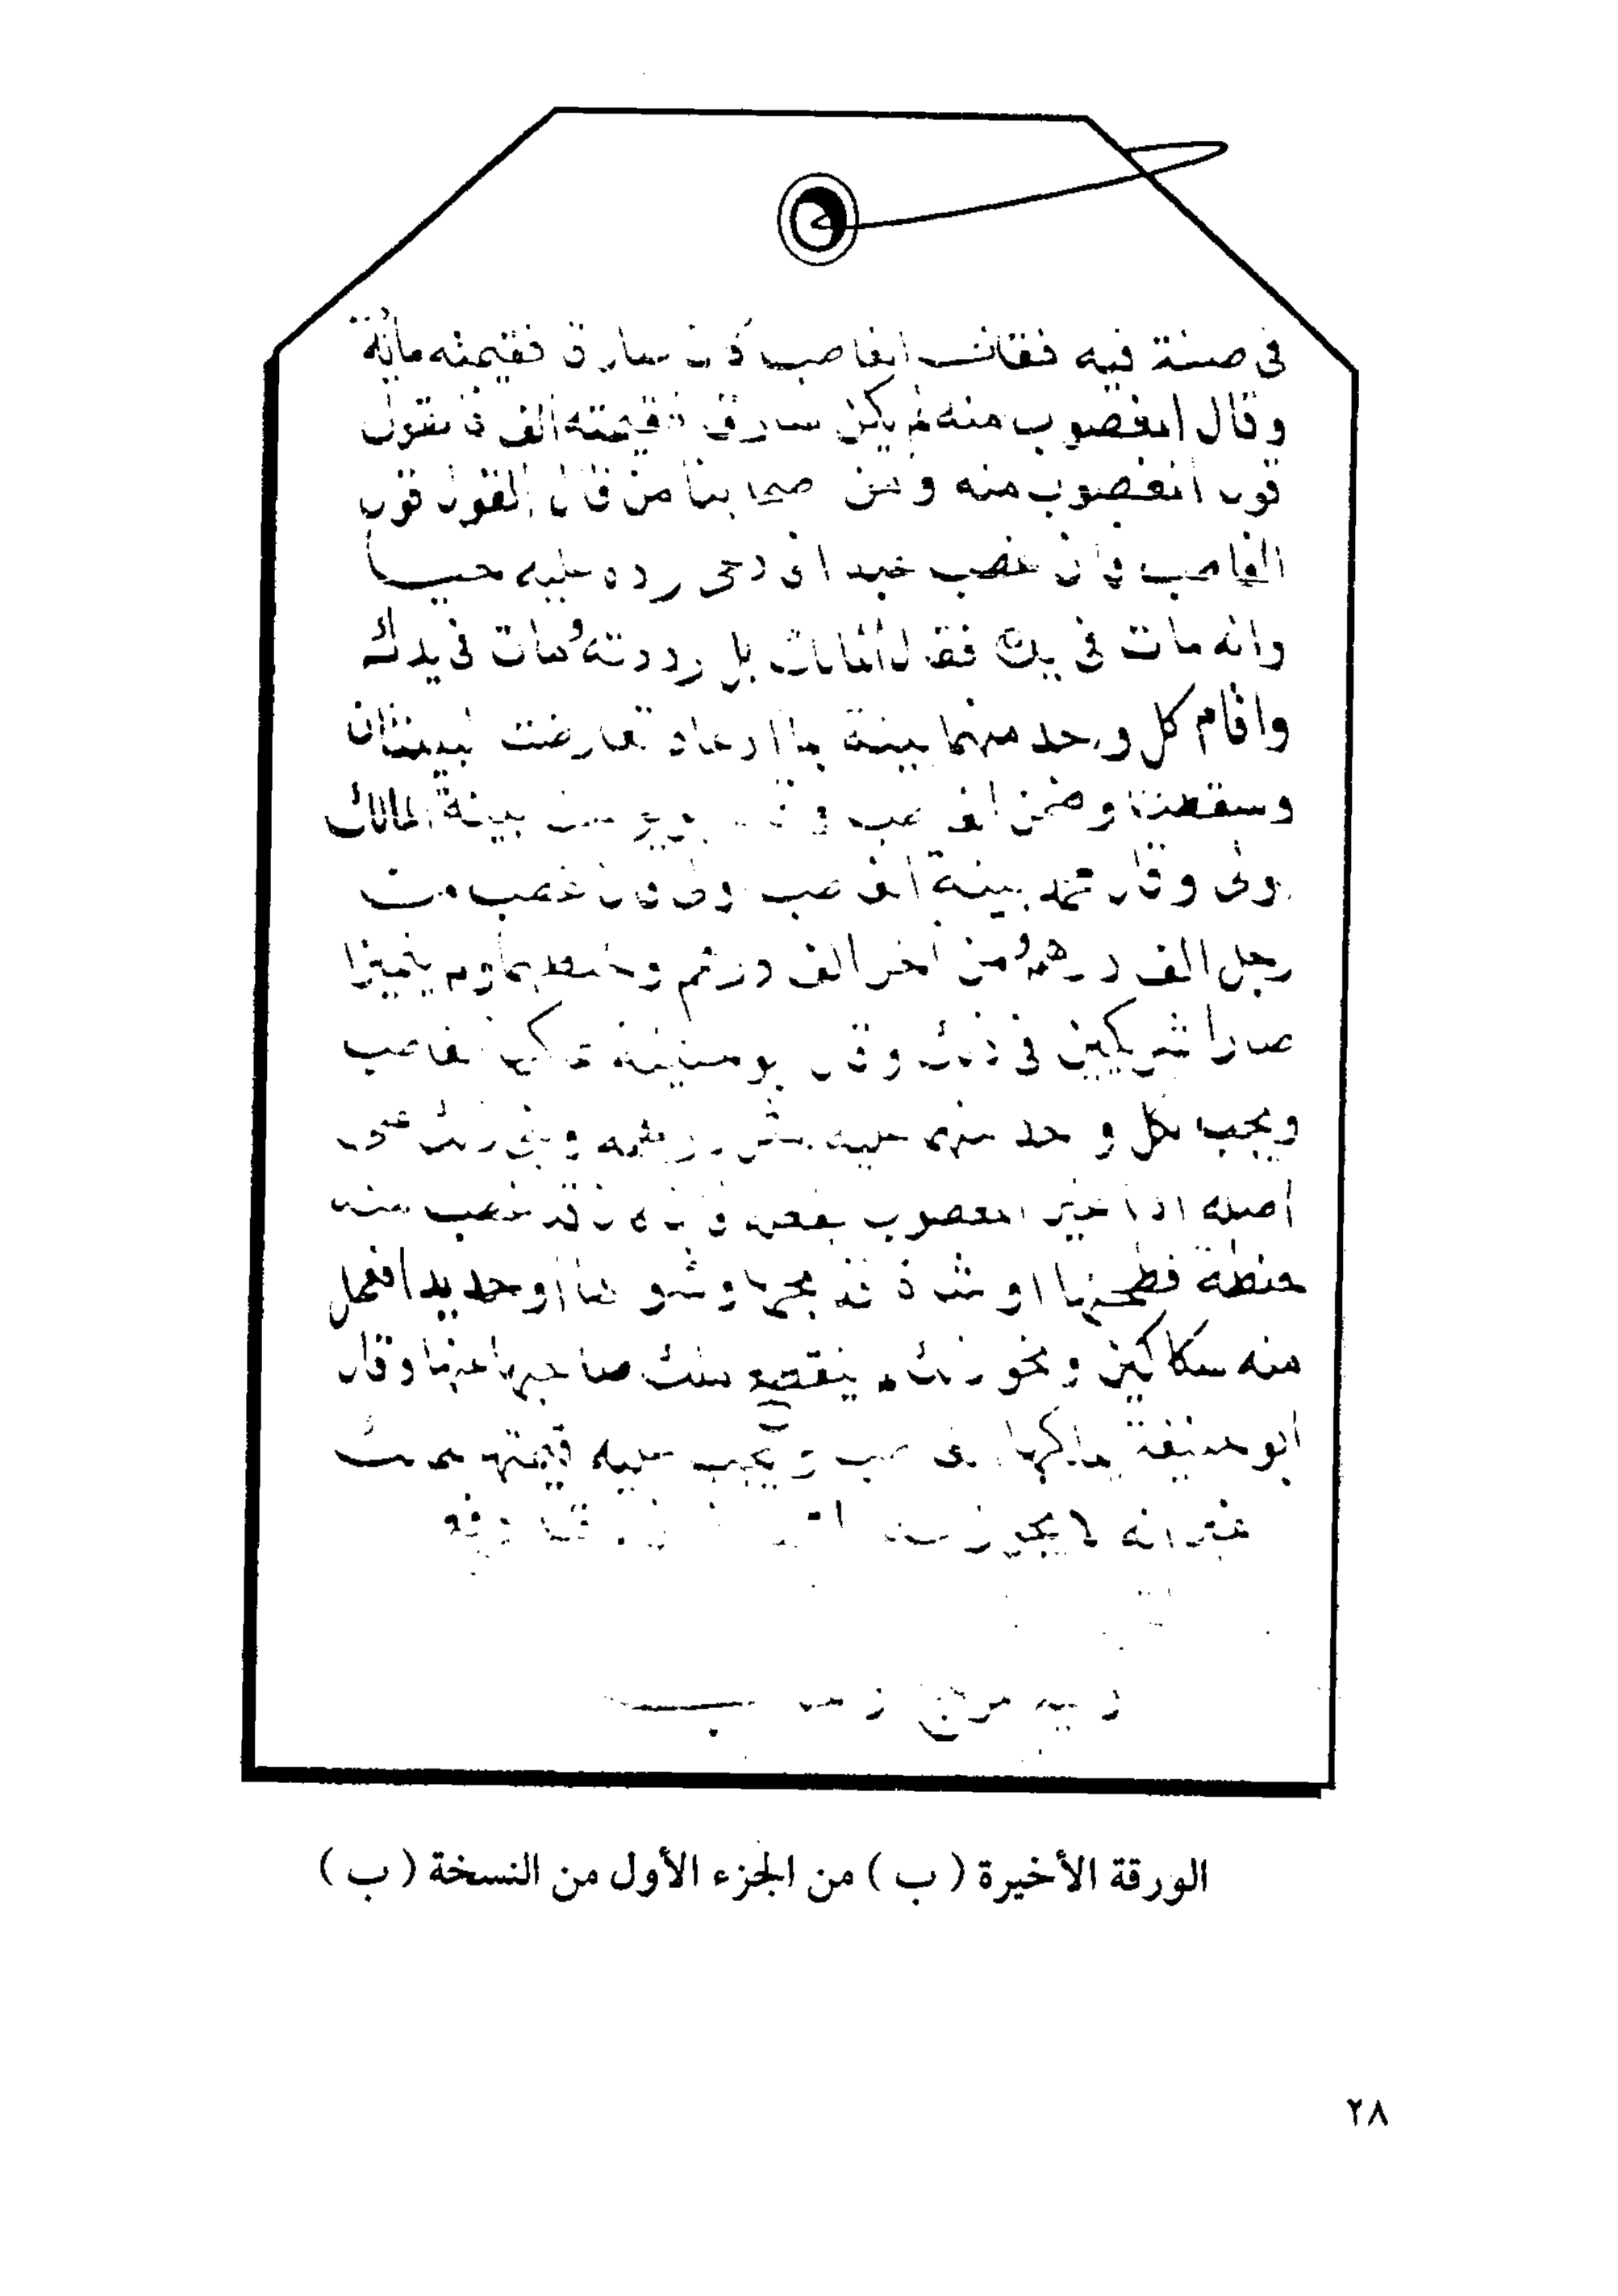 في صفة فيه فقال الغاصب كان سارق فقيمته مائة
وقال المغصوب منه لم يكن سارق فقيمته الف فالقول
قول المغصوب منه ومن صحابنا من قال القول قول
الغاصب فان غصب عبدا فادعى رده عليه حيا
وانه مات في يده فقال المالك بل رددته ومات في يدك
واقام كل واحد منهما بينة بما ادعاه تعارضت البينتان
وسقطتا وضمن الغاصب وقال ابو يوسف بينة المالك
اولى وقال محمد بينة الغاصب اولى فان غصب من
رجل الف درهم ومن اخر الف درهم وخلطهما ولم يتميزا
صارا شريكين في ذلك وقال ابو حنيفة يملكهما الغاصب
ويجب لكل واحد منهما عليه مثل دراهمه وبنى ذلك على
اصله اذا غير المغصوب بفعله فان غصب منه
حنطة فطحنها او شاة فذبحها وشواها او حديدا فعمل
منه سكاكين ونحو ذلك لم ينقطع ملك صاحبها عنها وقال
ابو حنيفة يملكها الغاصب ويجب عليه قيمتها
غير انه لا يجوز له
الورقة الأخيرة ( ب ) من الجزء الأول من النسخة ( ب )
٢٨